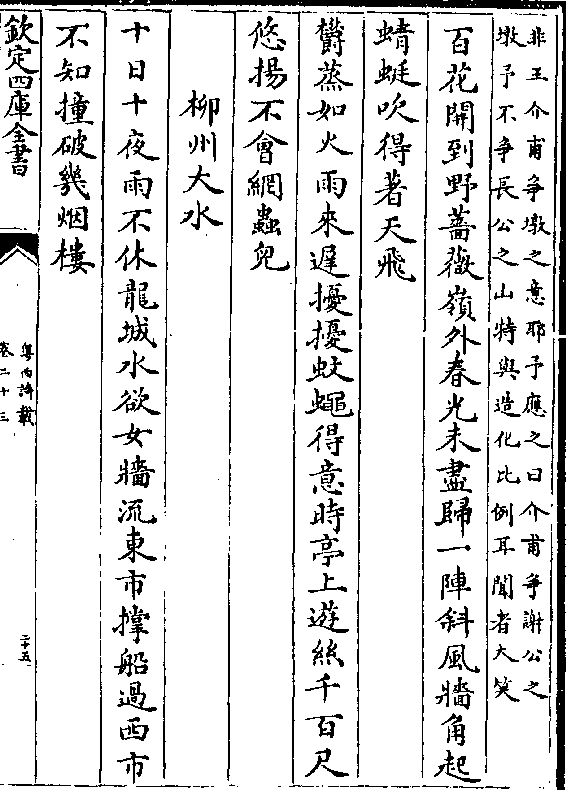 非王介甫爭墩之意耶予應之曰介甫爭謝公之
墩予不爭長公之山特與造化比例耳聞者大笑
百花開到野薔薇嶺外春光未盡歸一陣斜風牆角起
蜻蜓吹得著天飛
欝蒸如火雨來遲擾擾蚊蠅得意時亭上遊絲千百尺
悠揚不會網蟲兒
柳州大水
十日十夜雨不休龍城水欲女牆流東市撑船過西市
不知撞破幾烟樓
欽定四庫全書
粤西詩載
卷二十三
二十五